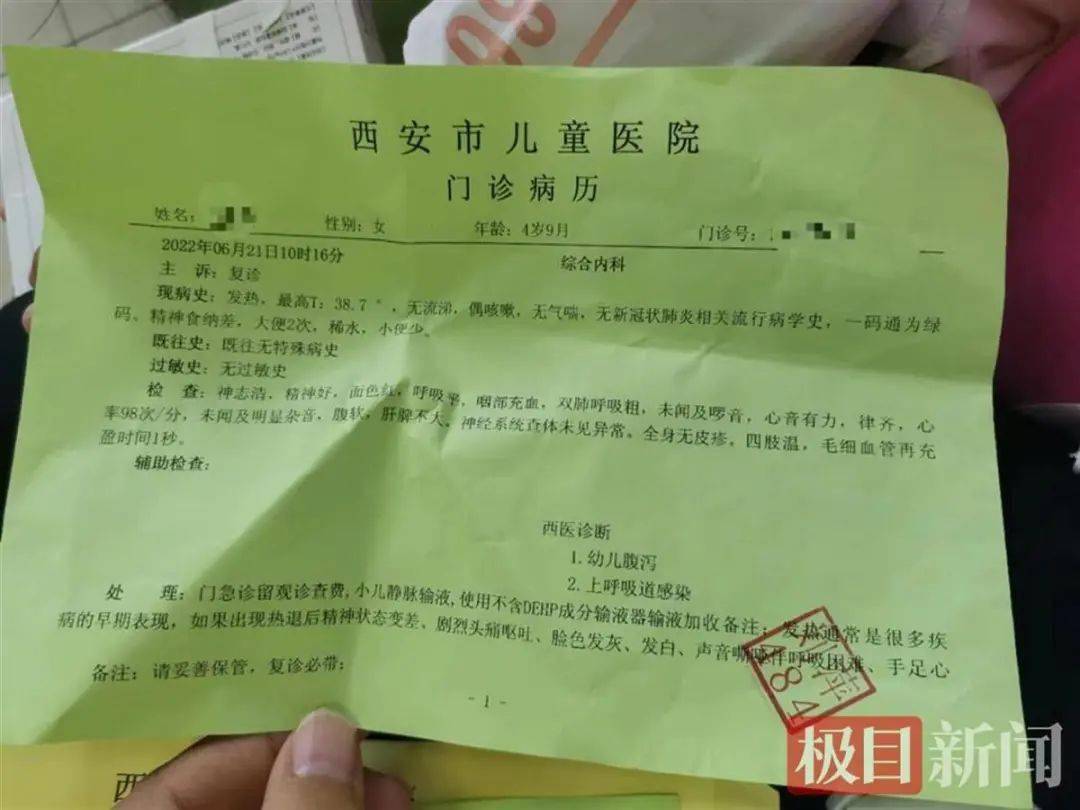 西安市儿童医院
门诊病历
姓名: 性别: 女 年龄: 4岁9月 门诊号:
2022年06月21日10时16分 综合内科
主 诉: 复诊
现病史: 发热, 最高T: 38.7°, 无流涕, 偶咳嗽, 无气喘, 无新冠状肺炎相关流行病学史, 一码通为绿
码。精神食纳差, 大便2次, 稀水, 小便少。
既往史: 既往无特殊病史
过敏史: 无过敏史
检 查: 神志浩, 精神好, 面色红, 呼吸平, 咽部充血, 双肺呼吸粗, 未闻及啰音, 心音有力, 律齐, 心
率98次/分, 未闻及明显杂音, 腹软, 肝脾不大、神经系统查体未见异常。全身无皮疹。四肢温, 毛细血管再充
盈时间1秒。
辅助检查:
西医诊断
1.幼儿腹泻
2.上呼吸道感染
处 理: 门急诊留观诊查费, 小儿静脉输液, 使用不含DEHP成分输液器输液加收备注: 发热通常是很多疾
病的早期表现, 如果出现热退后精神状态变差、剧烈头痛呕吐、脸色发灰、发白、声音嘶哑伴呼吸困难、手足心
备注: 请妥善保管, 复诊必带:
484
- 1 -
极目新闻
西